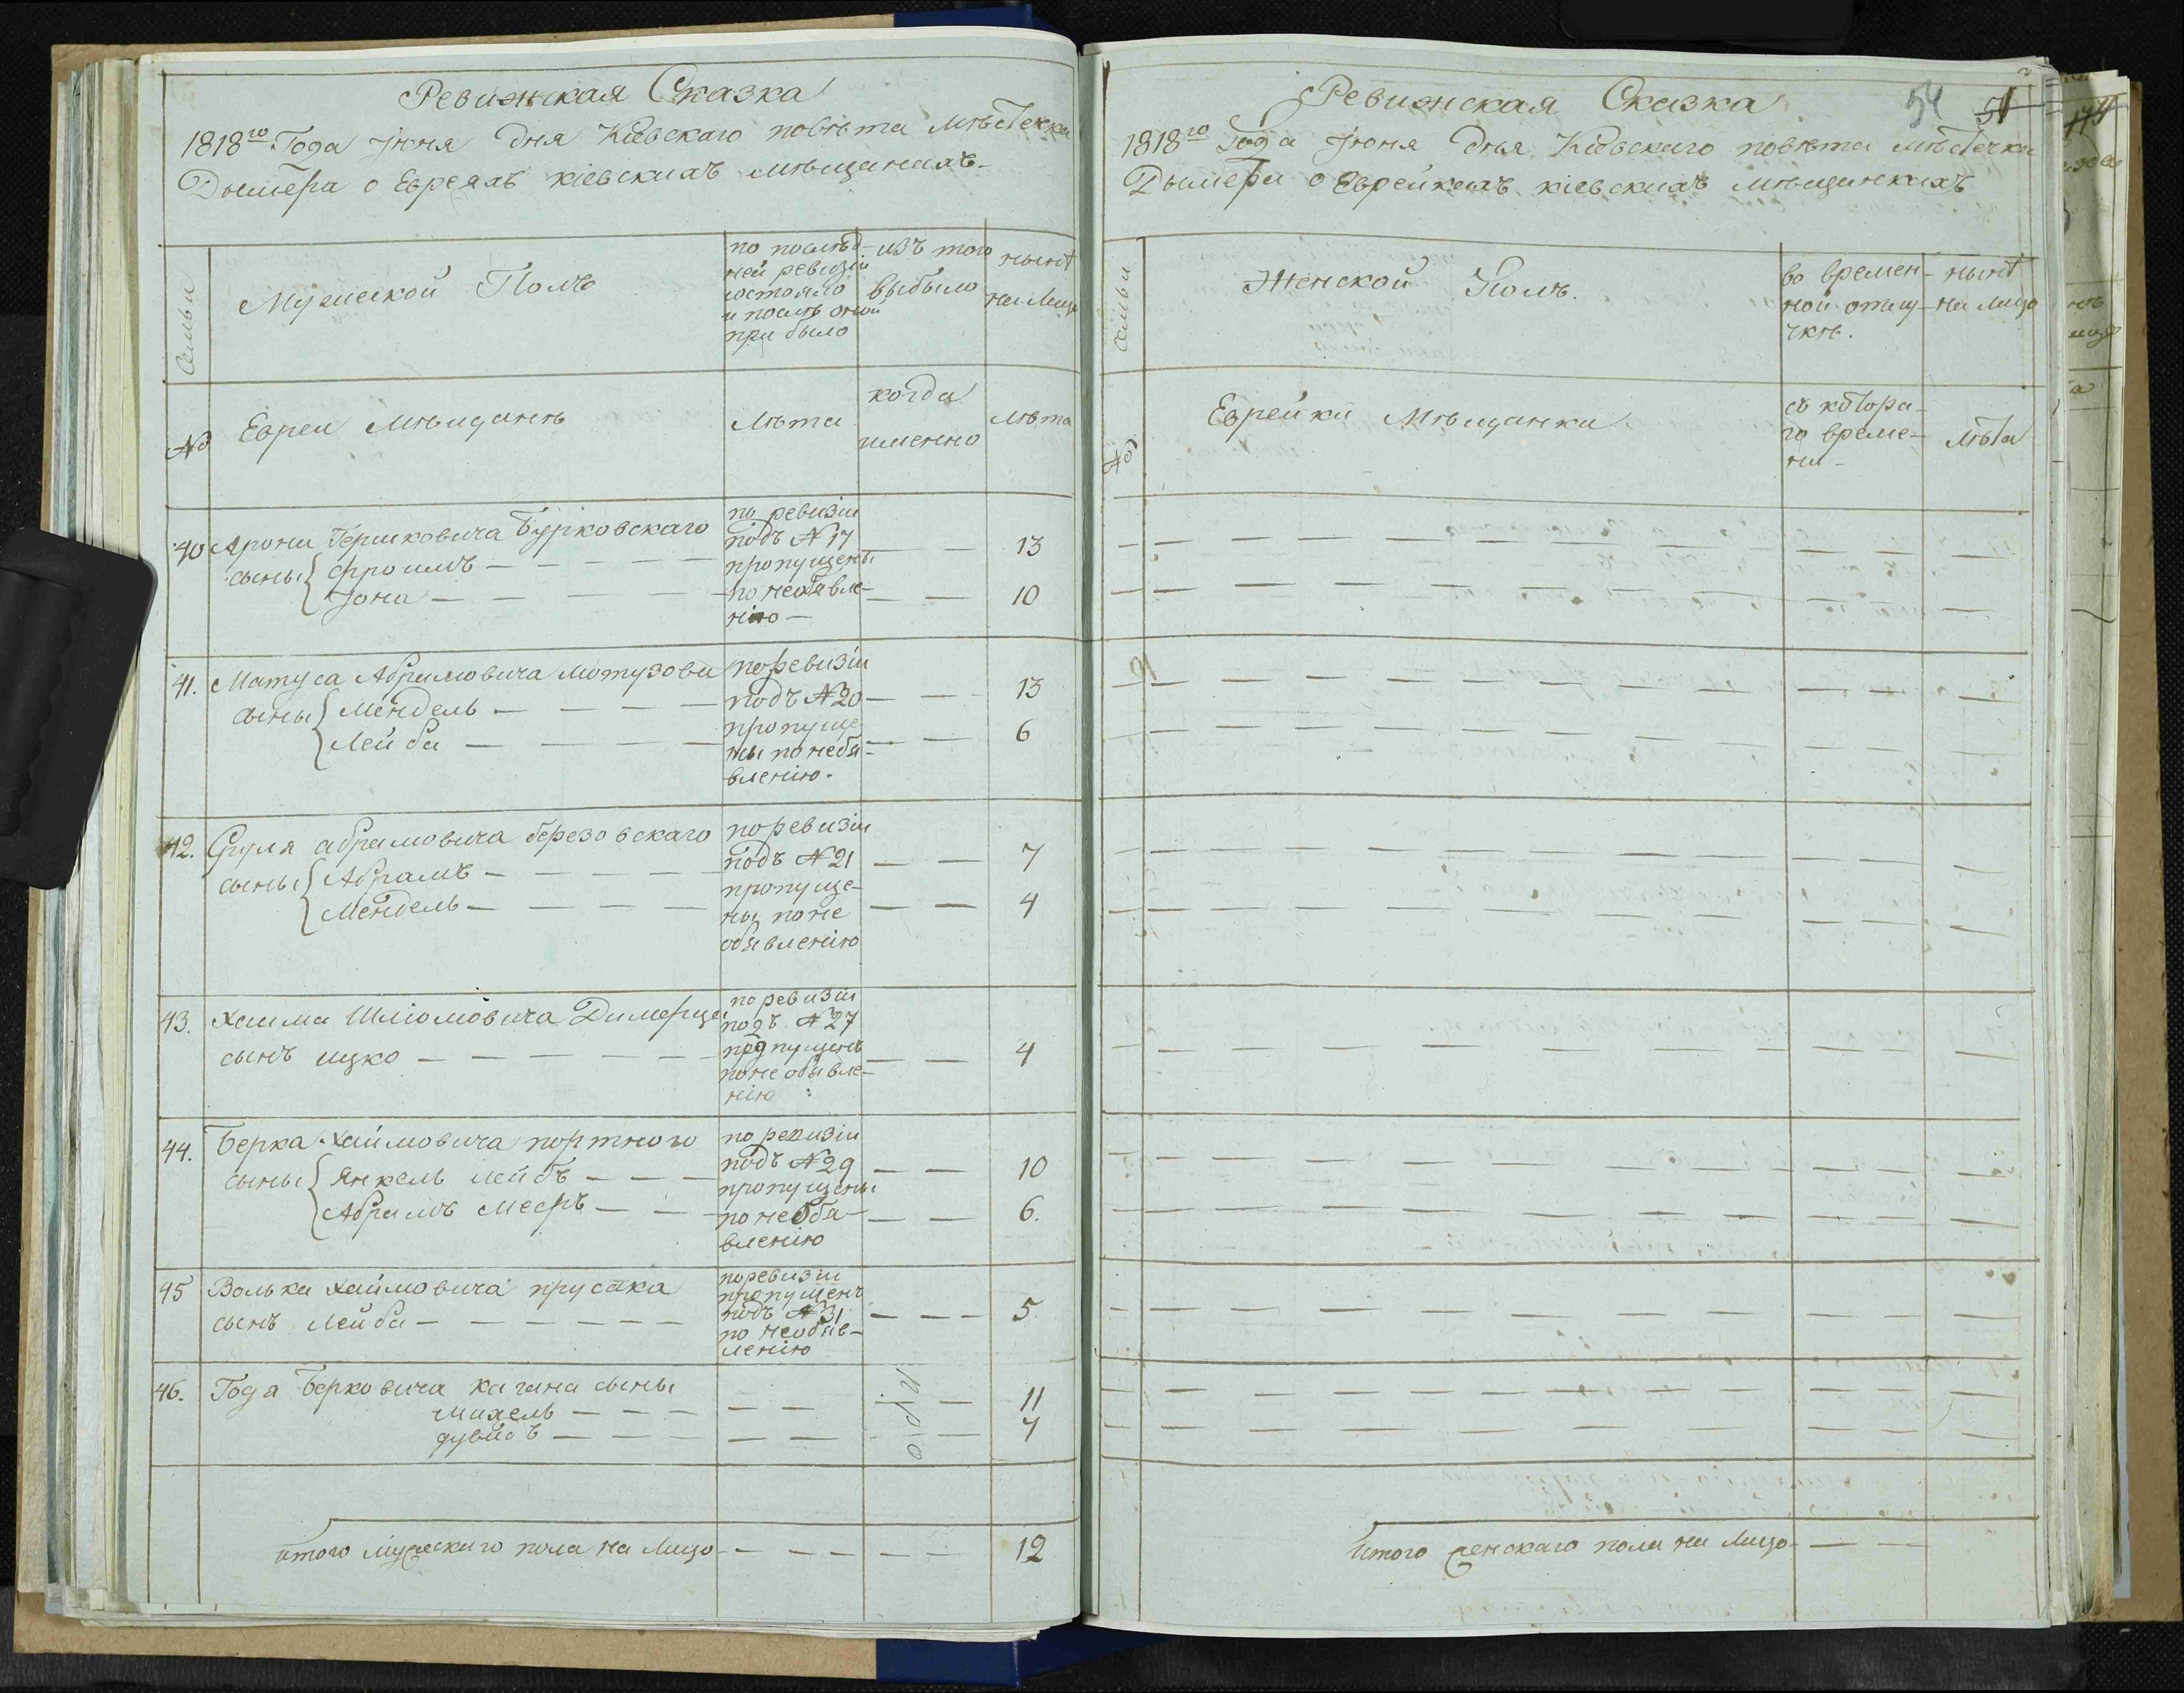 Ревижская Сказка
1818го Года Іюня дня Кіевскаго повѣта мѣстечка
Дымера о Евреяхъ кіевскихъ мѣщанахъ
Семьи
Мужеской Полъ
по послѣд-
ней ревизіи
состояло
и послѣ оной
прибыло
изъ того
выбыло
нынѣ
на лицо
№
Евреи Мѣщанѣ
Лѣта
когда
именно
лѣта
40 Арона Гершковича Бурковскаго
сыны { Фроимъ — — — —
Iона — — — — —
по ревизіи
подъ №17
пропущены
по необявле-
нію —
13
10
41. Матуса Абрамовича мотузова
сыны { Мендель — — — —
Лейба — — — —
по ревизіи
подъ №20
пропуще
ны по необя-
вленію.
13
6
42. Сруля абрамовича березовскаго
сыны { Абрамъ — — — —
Мендель — — — —
по ревизіи
подъ №21
пропуще-
ны по не
обявленію
7
4
43. Хаима Шліомовича Димерца
сынъ ицко — — — — — —
по ревизіи
подъ №27
пропущенъ
по необявле-
нію
4
44. Берка Хаймовича портного
сыны { Янкель лейбъ — — —
Абрамъ Мееръ — — —
по ревизіи
подъ №29
пропущены
по необя-
вленію
10
6.
45 Волька хаймовича прусака
сынъ Лейба — — — — — —
по ревизіи
пропущенъ
подъ №31
по необяв-
ленію
5.
46. Года Берковича кагана сыны
михель — — —
дувидъ — — —
11
7
итого мужескаго пола на лицо — — — — —
12
Ревижская Сказка
54 51
1818го Года Іюня Дня Кіевскаго повѣта мѣстечка
Дымера о Еврейкахъ кіевскихъ мѣщанкахъ
Семьи
Женской Полъ.
во времен-
ной отлу-
чкѣ.
нынѣ
на лицо
№
Еврейки Мѣщанки
съ котора-
го време-
ни —
лѣта
Итого женскаго пола на лицо — —